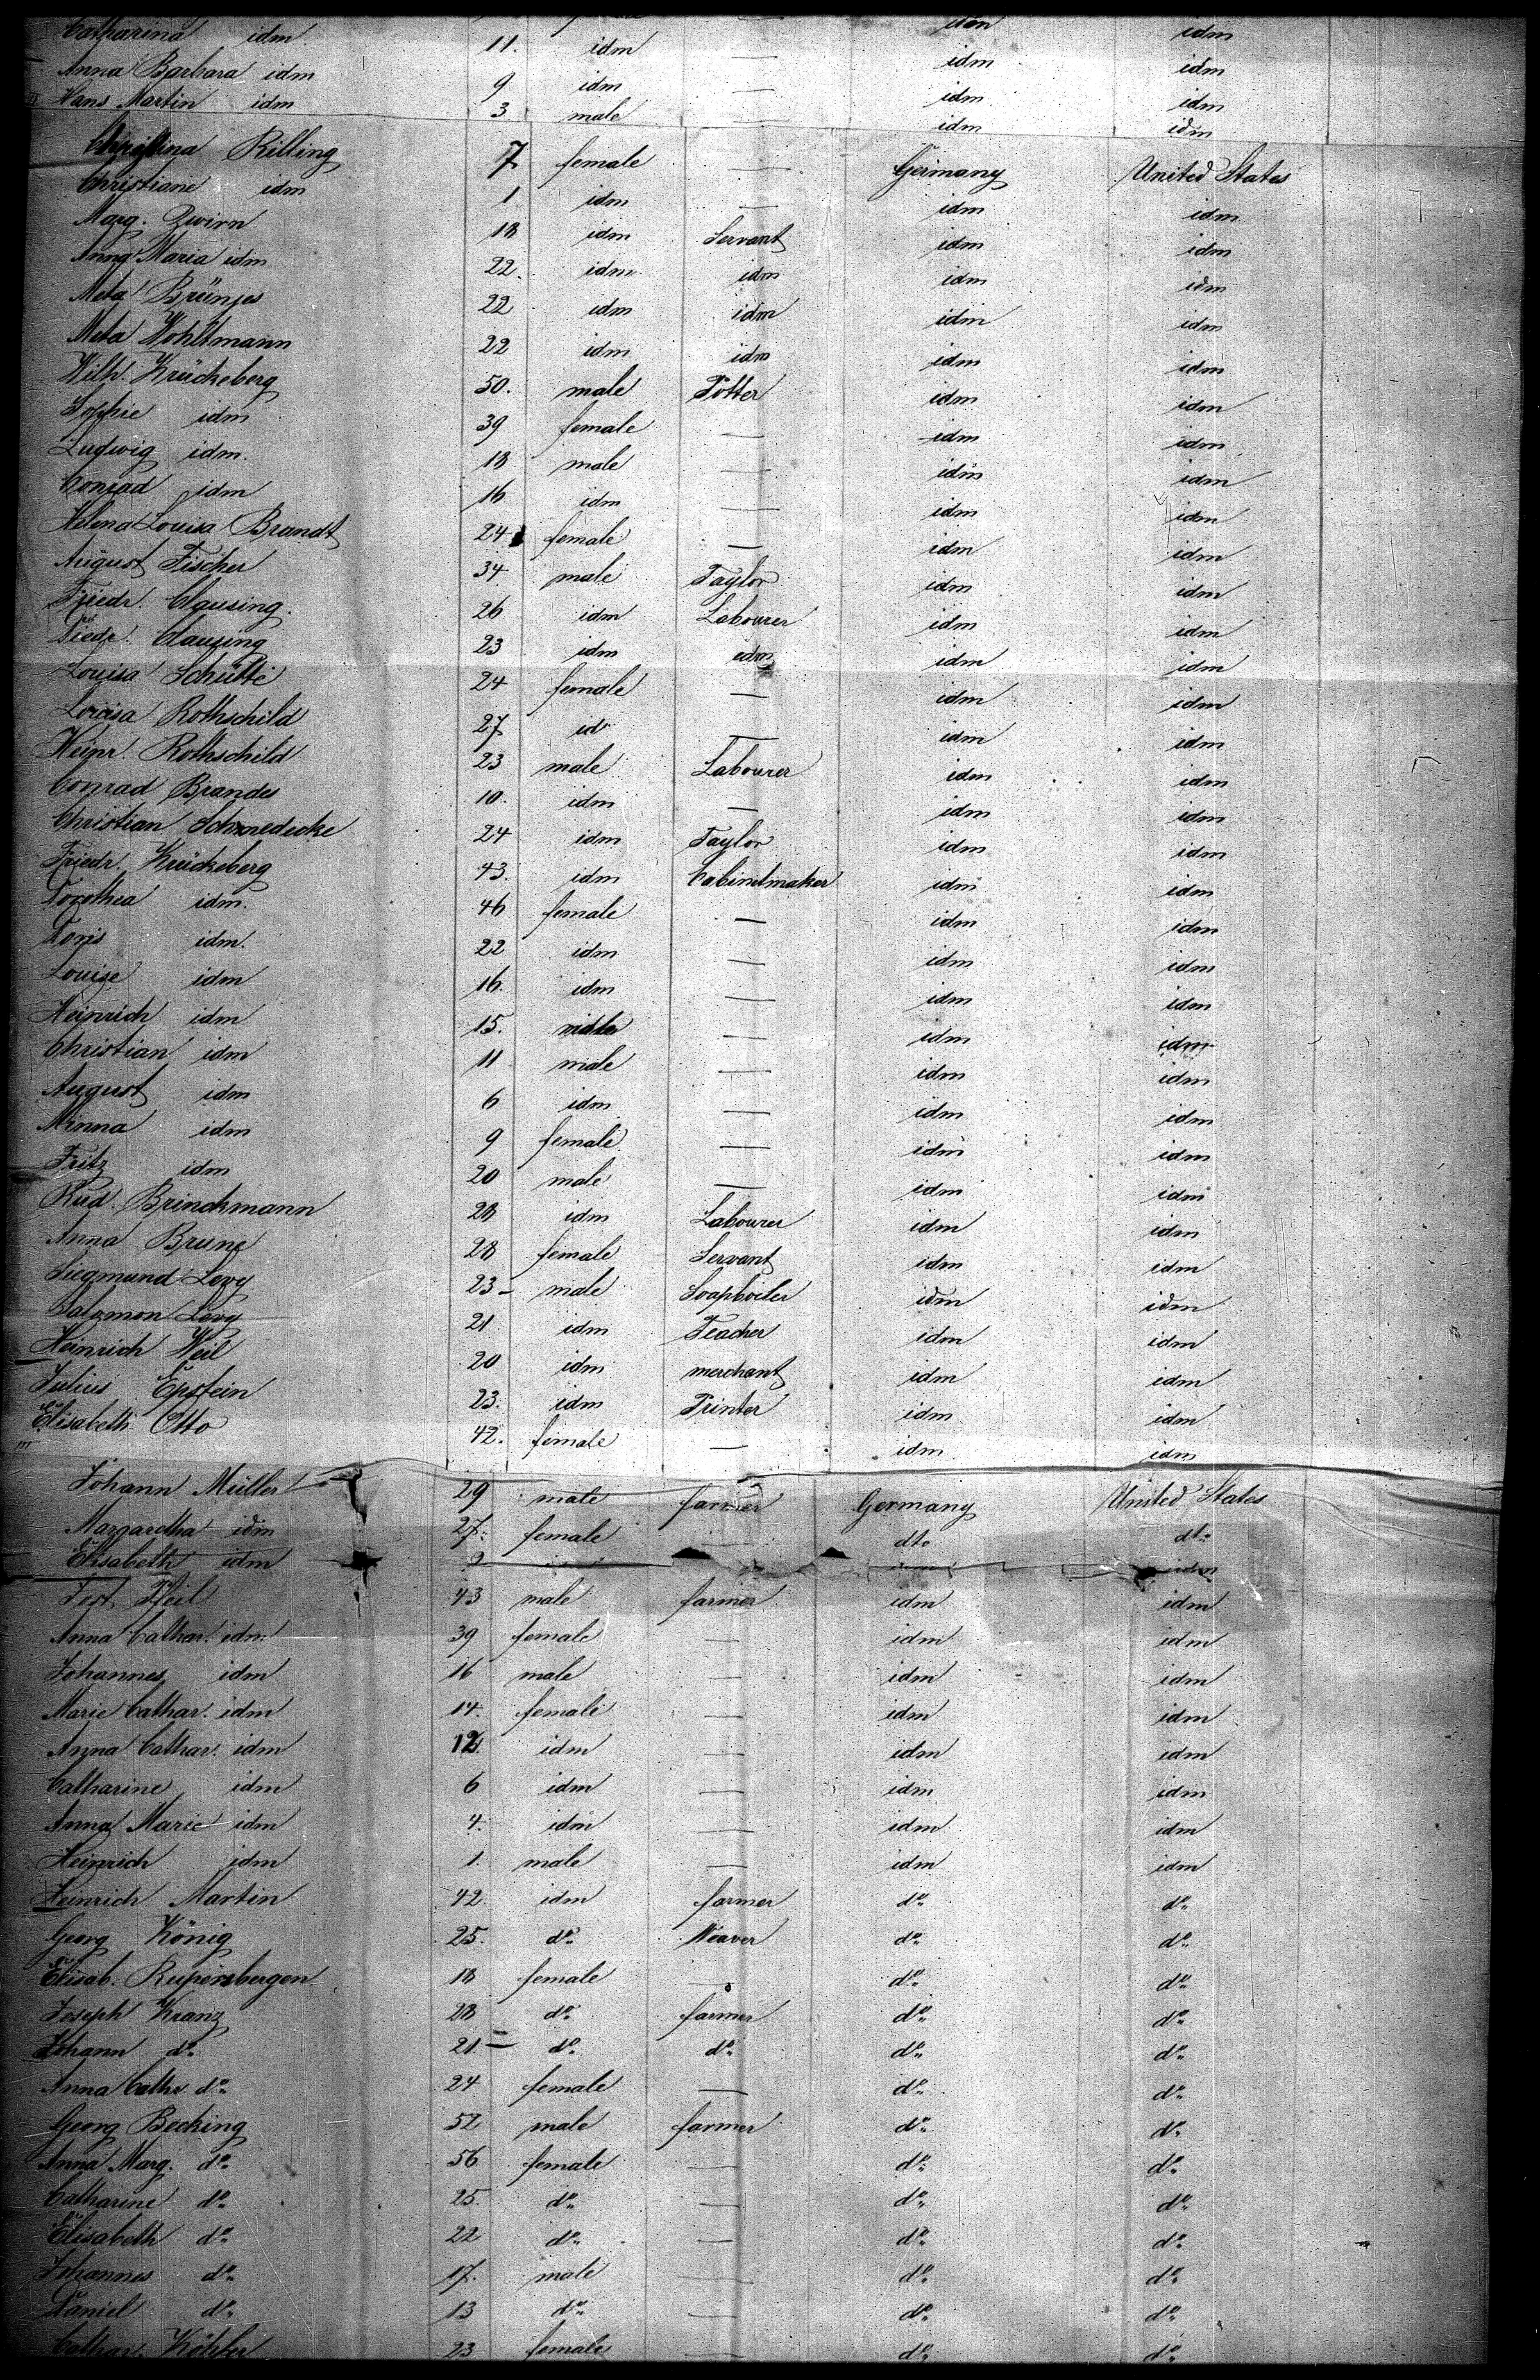 Catharina idm 11. idm — idm idm
Anna Barbara idm 9 idm — idm idm
Hans Martin idm 3 male — idm idm
Christina Rilling 7 female — Germany United States
Christiane idm 1 idm — idm idm
Marg. Zwirn 18 idm Servant idm idm
Anna Maria idm 22. idm idm idm idm
Meta Brünjes 22 idm idm idm idm
Meta Wohltmann 22 idm idm idm idm
Wilh. Krückeberg 50. male Potter idm idm
Sophie idm 39 female — idm idm
Ludwig idm. 18 male — idm idm
Conrad idm 16 idm — idm idm
Helena Louisa Brandt 24 female — idm idm
August Fischer 34 male Taylor idm idm
Friedr. Clausing. 26 idm Labourer idm idm
Diedr. Clausing 23 idm idm idm idm
Louisa Schütte 24 female — idm idm
Louisa Rothschild 27 id — idm idm
Heinr. Rothschild 23 male Labourer idm idm
Conrad Brandes 10. idm — idm idm
Christian Schmedecke 24 idm Taylor idm idm
Friedr. Krückeberg 43. idm Cabinetmaker idm idm
Dorothea idm. 46 female — idm idm
Doris idm. 22 idm — idm idm
Louise idm 16. idm — idm idm
Heinrich idm 15. male — idm idm
Christian idm 11 male — idm idm
August idm 6 idm — idm idm
Minna idm 9 female — idm idm
Fritz idm 20 male — idm idm
Rud. Brinckmann 28 idm Labourer idm idm
Anna Brune 28 female Servant idm idm
Siegmund Levy 23 male Soapboiler idm idm
Salomon Levy 21 idm Teacher idm idm
Heinrich Weil 20 idm merchant idm idm
Julius Epstein 23. idm Printer idm idm
Elisabeth Otto 42. female — idm idm
Johann Müller 29 male farmer Germany United States
Margaretha idm 27. female — dto dto
Elisabeth idm idm
Jost Pfeil 43 male farmer idm idm
Anna Cathar. idm 39 female — idm idm
Johannes idm 16 male — idm idm
Marie Cathar. idm 14. female — idm idm
Anna Cathar. idm 12. idm — idm idm
Catharine idm 6 idm — idm idm
Anna Marie idm 4. idm — idm idm
Heinrich idm 1. male — idm idm
Heinrich Martin 42. idm farmer do do
Georg König 25. do Weaver do do
Elisab. Rupersbergen 18 female — do do
Joseph Kranz 28 do farmer do do
Johann do 21 do do do do
Anna Cathr. do 24 female — do do
Georg Becking 52 male farmer do do
Anna Marg. do 56 female — do do
Catharine do 25. do — do do
Elisabeth do 22 do — do do
Johannes do 17. male — do do
Daniel do 13 do — do do
Cathar. Köhler 23 female do do